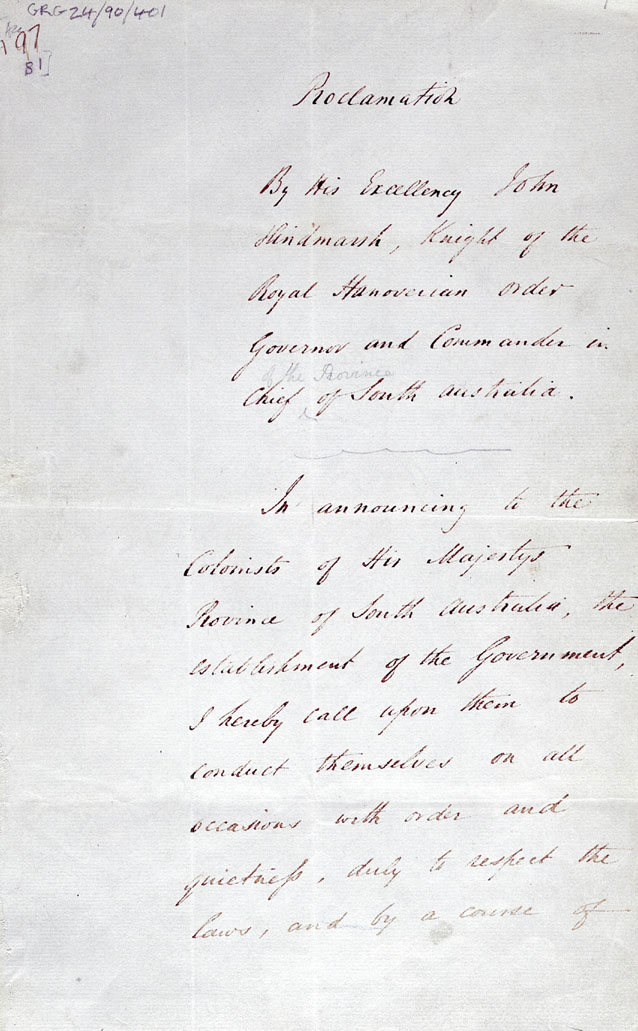 GRG 24/90/401
97
B1]
Proclamation
By His Excellency John
Hindmarsh, Knight of the
Royal Hanoverian Order
Governor and Commander in
of the Province
Chief of South Australia.
In announcing to the
Colonists of His Majestys
Province of South Australia, the
establishment of the Government,
I hereby call upon them to
conduct themselves on all
occasions with order and
quietness, duly to respect the
laws, and by a course of